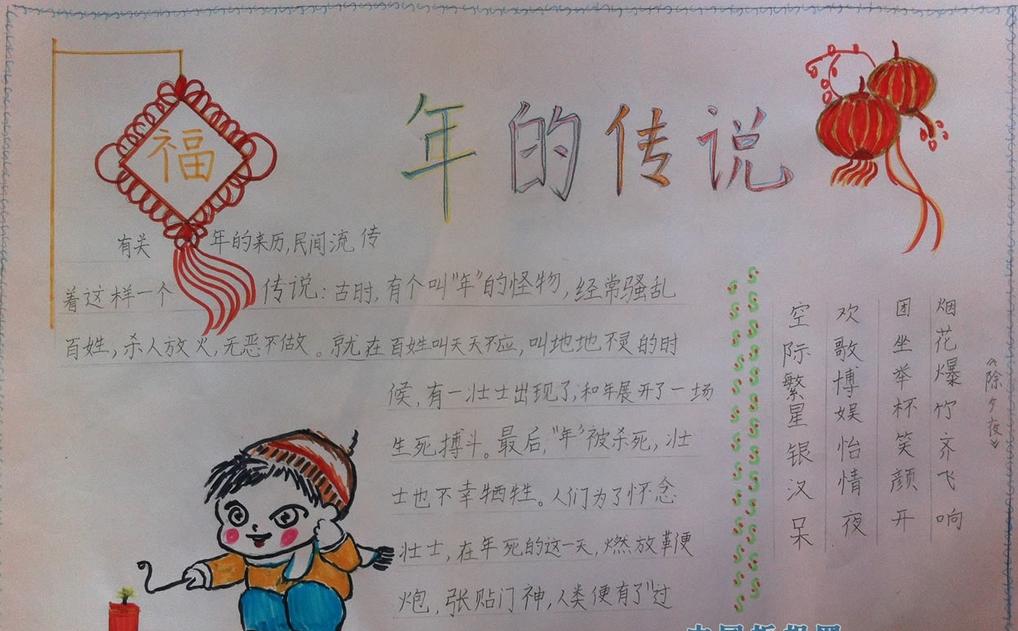 福
年的传说
有关年的来历,民间流传
着这样一个传说:古时,有个叫“年”的怪物,经常骚乱
百姓,杀人放火,无恶不做。就在百姓叫天天不应,叫地地不灵的时
候,有一壮士出现了,和年展开了一场
生死搏斗。最后,“年”被杀死,壮
士也不幸牺牲。人们为了怀念
壮士,在年死的这一天,燃放鞭
炮,张贴门神,人类便有了“过
《除夕夜》
烟花爆竹齐飞响
团坐举杯笑颜开
欢歌博娱怡情夜
空际繁星银汉呆